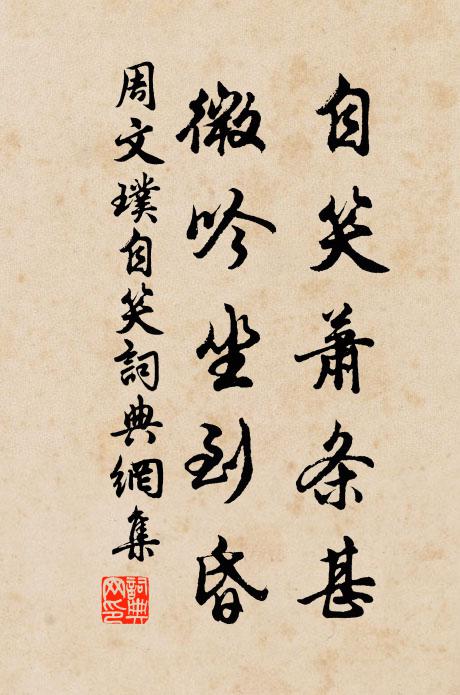 自笑蕭条甚
微吟坐到昏
周文璞自笑詞典網集
詞典
网印